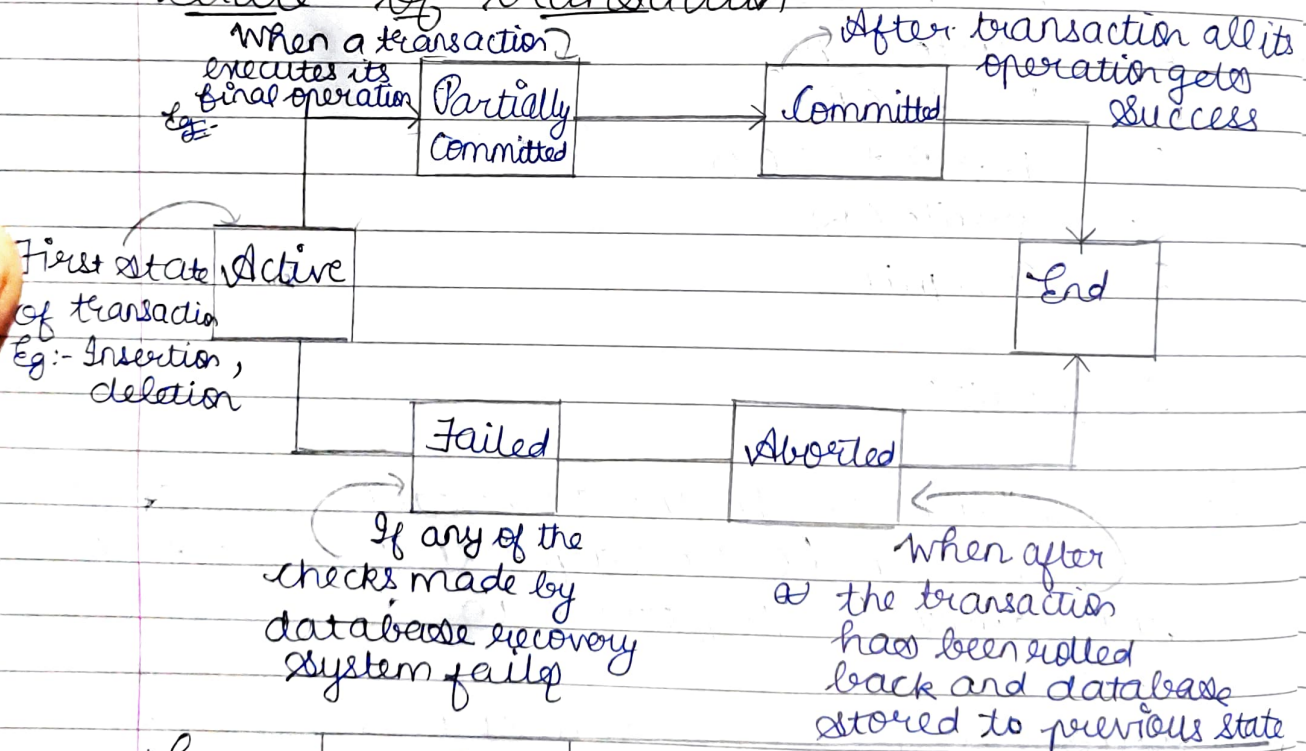 of transaction
When a transaction
executes its
final operation
Eg:-
Partially
Committed
Committed
After transaction all its
operation gets
success
First state
of transactio
Eg:- Insertion,
deletion
Active
End
Failed
Aborted
If any of the
checks made by
database recovery
system fails
When after
the transaction
has been rolled
back and database
stored to previous state